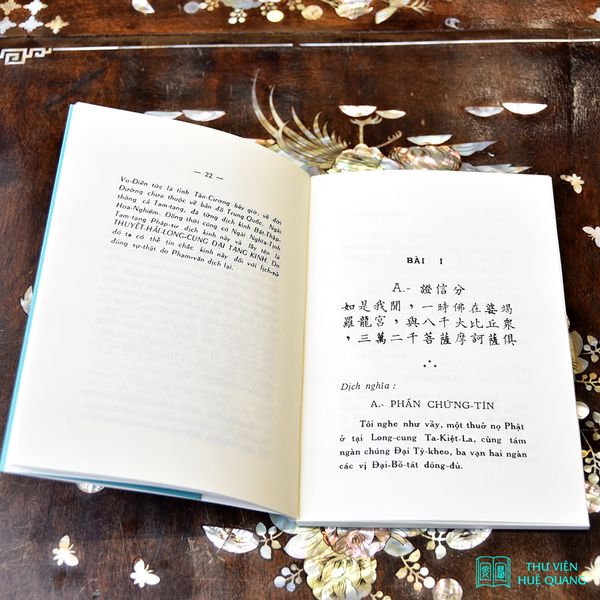 — 22 —
Vu-Điền tức là tỉnh Tân-Cương bây giờ, về đời
Đường chưa thuộc về bản đồ Trung Quốc. Ngài
thông cả Tam-tạng, đã từng dịch kinh Bát-Thập-
Hoa-Nghiêm. Đồng thời cũng có Ngài Nghĩa-Tịnh
Tam-tạng Pháp-sư dịch kinh này và lấy tên là
THUYẾT-HẢI-LONG-CUNG ĐẠI TẠNG KINH. Do
đó ta có thể tin chắc kinh này đối với lịch-sử
đúng sự-thật do Phạm-văn dịch lại.
BÀI I
A.- 證信分
如是我聞，一時佛在婆竭
羅龍宮，與八千大比丘眾
，三萬二千菩薩摩訶薩俱
Dịch nghĩa :
A.- PHẦN CHỨNG-TÍN
Tôi nghe như vầy, một thuở nọ Phật
ở tại Long-cung Ta-Kiệt-La, cùng tám
ngàn chúng Đại Tỳ-kheo, ba vạn hai ngàn
các vị Đại-Bồ-tát đông-đủ.
THƯ VIỆN
HUỆ QUANG